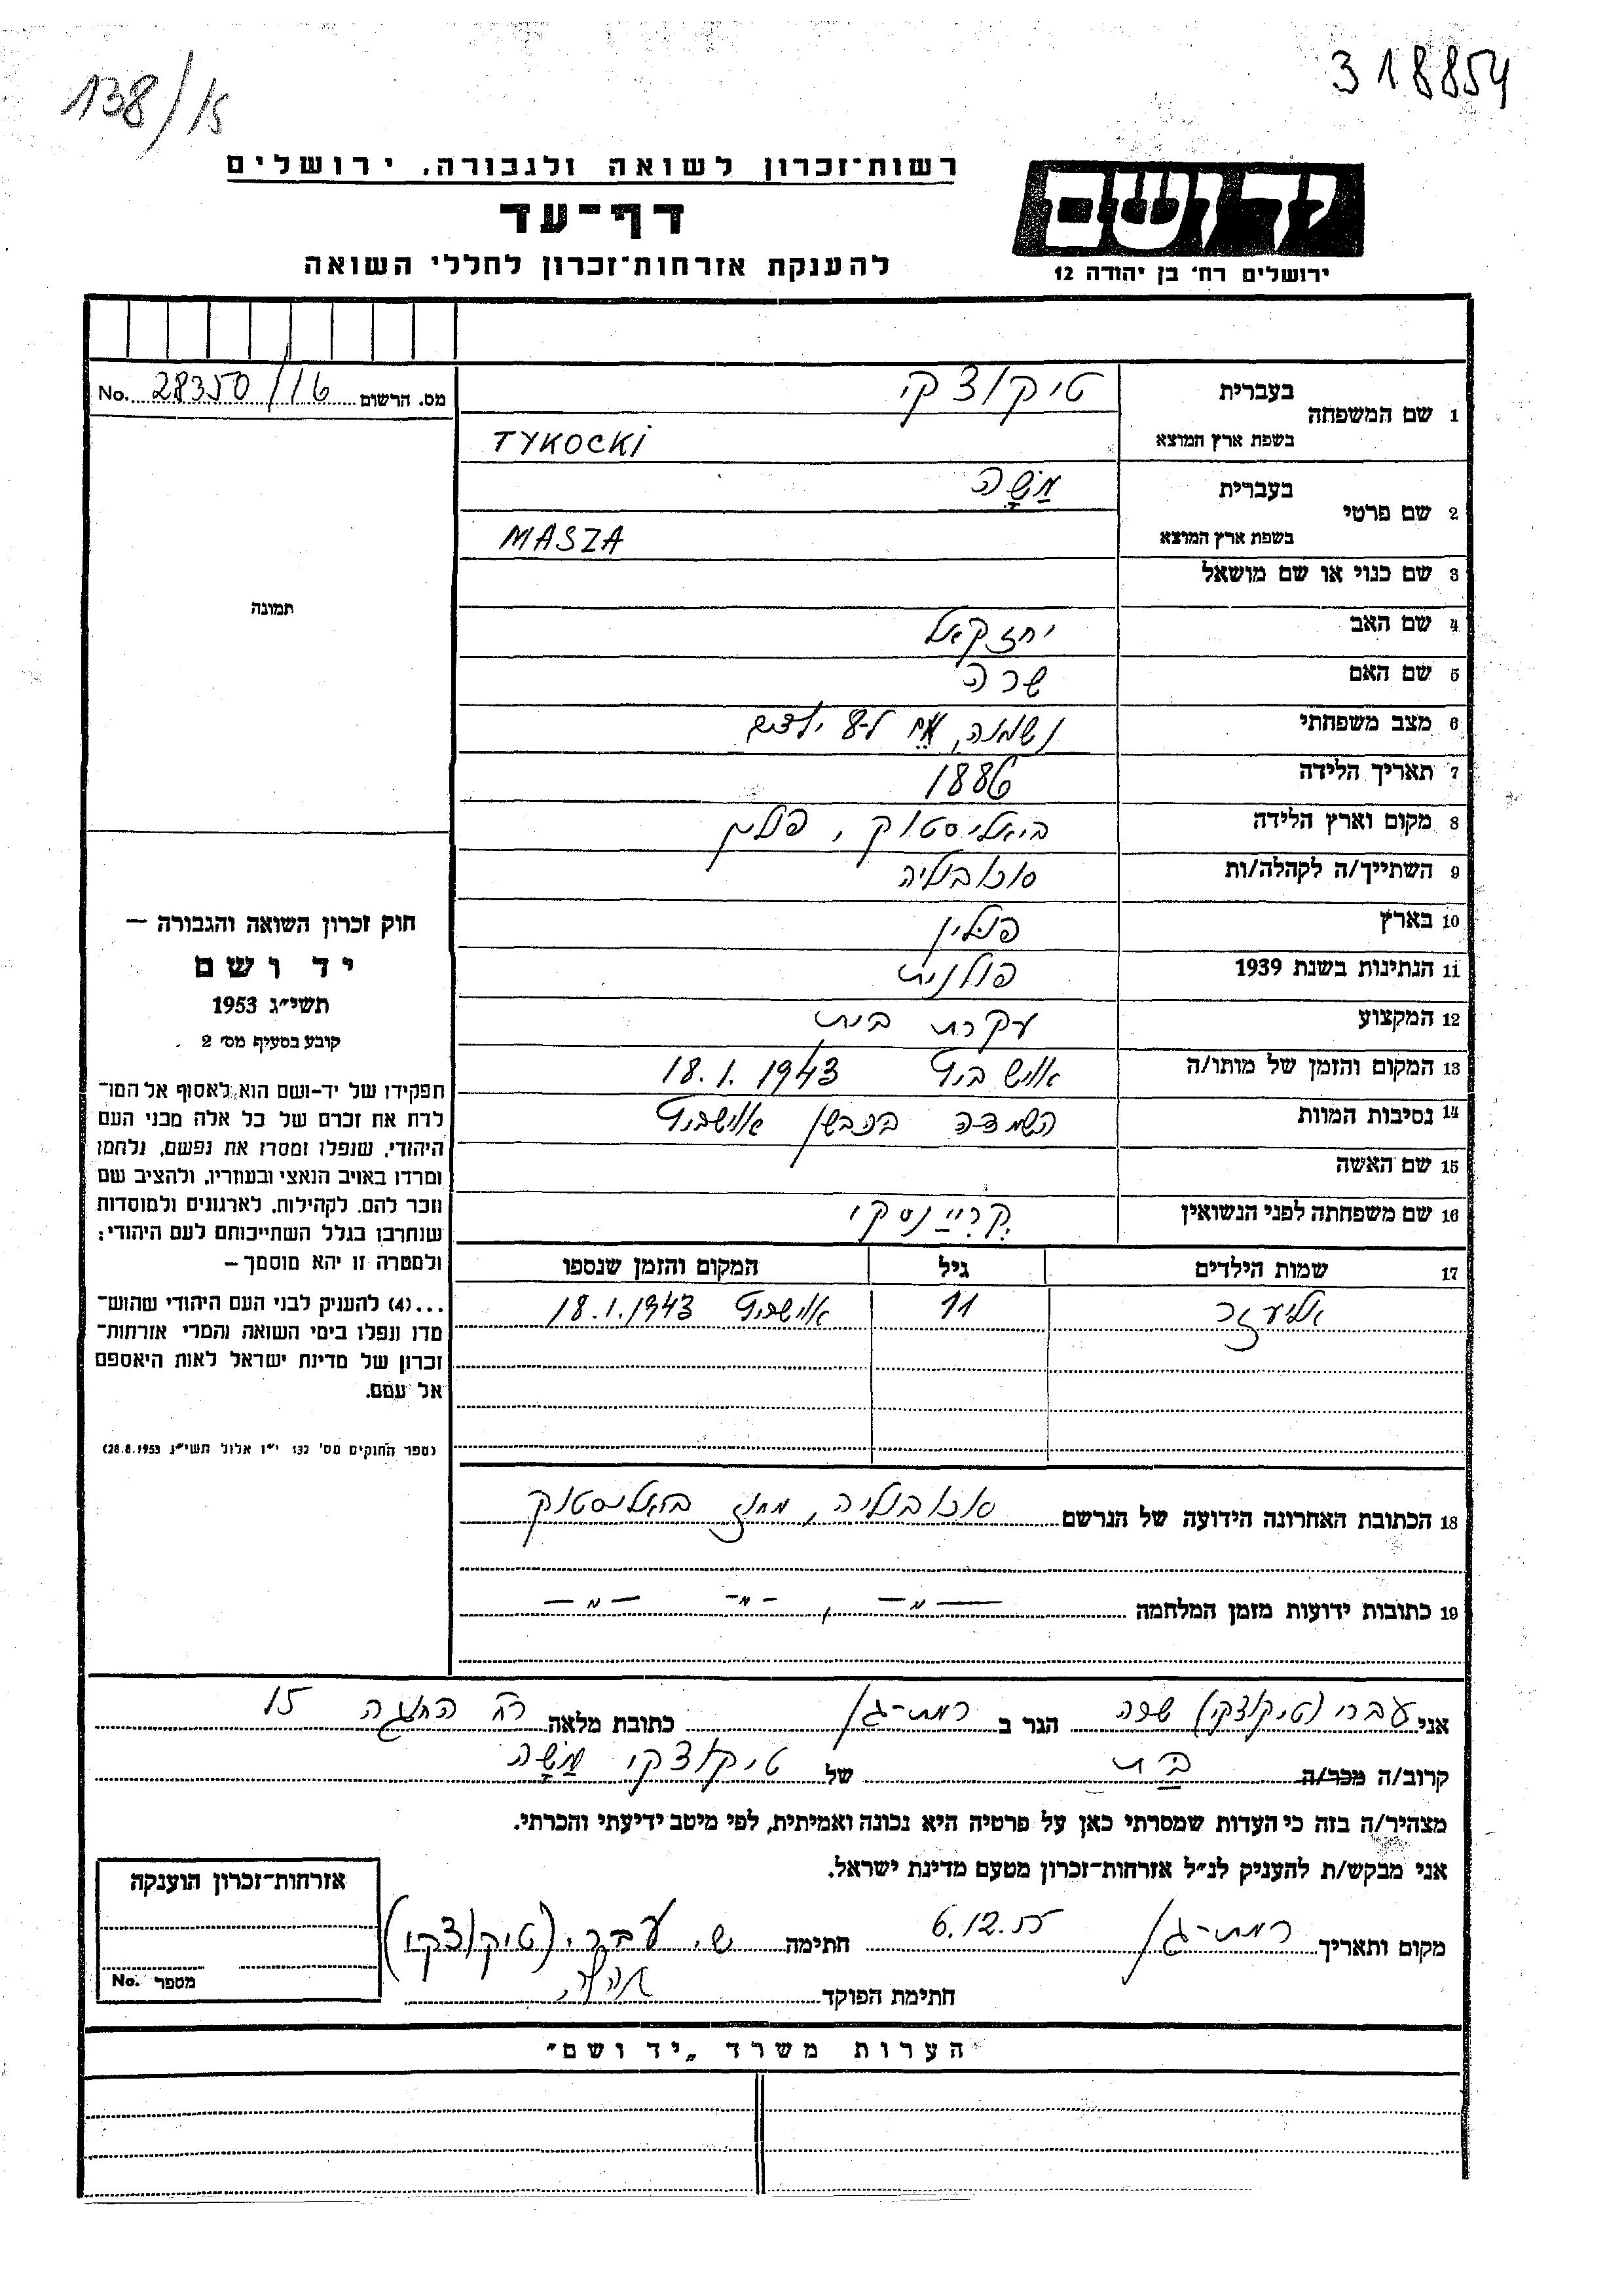 138/15
318854
יד ושם
ירושלים רח' בן יהודה 12
רשות־זכרון לשואה ולגבורה. ירושלים
דף־עד
להענקת אזרחות־זכרון לחללי השואה
No. 28350/16 מס. הרשום
1 שם המשפחה בעברית טיקוצקי
בשפת ארץ המוצא TYKOCKI
2 שם פרטי בעברית מַשָה
בשפת ארץ המוצא MASZA
3 שם כנוי או שם מושאל
4 שם האב יחזקאל
5 שם האם שרה
6 מצב משפחתי נשואה, אֵם ל-8 ילדים
7 תאריך הלידה 1886
8 מקום וארץ הלידה ביאליסטוק, פולין
9 השתייך/ה לקהלה/ות
10 בארץ פולין
11 הנתינות בשנת 1939 פולנית
12 המקצוע עקרת בית
13 המקום והזמן של מותו/ה אושביץ 18.1.1943
14 נסיבות המוות הושמדה בכבשן אושביץ
15 שם האשה
16 שם משפחתה לפני הנשואין
17 שמות הילדים גיל המקום והזמן שנספו
אליעזר 11 אושביץ 18.1.1943
18 הכתובת האחרונה הידועה של הנרשם מחוז ביאליסטוק
19 כתובות ידועות מזמן המלחמה — " — , - " - — " —
תמונה
חוק זכרון השואה והגבורה —
יד ושם
תשי״ג 1953
קובע בסעיף מס׳ 2
תפקידו של יד-ושם הוא לאסוף אל המו־
לדת את זכרם של כל אלה מבני העם
היהודי, שנפלו ומסרו את נפשם, נלחמו
ומרדו באויב הנאצי ובעוזריו, ולהציב שם
וזכר להם, לקהילות, לארגונים ולמוסדות
שנחרבו בגלל השתייכותם לעם היהודי;
ולמטרה זו יהא מוסמך —
...(4) להעניק לבני העם היהודי שהוש־
מדו ונפלו בימי השואה והמרי אזרחות־
זכרון של מדינת ישראל לאות היאספם
אל עמם.
(ספר החוקים מס׳ 132 י״ז אלול תשי״ג 28.8.1953)
אני עברי (טיקוצקי) שרה הגר ב רמת-גן כתובת מלאה רח' החוגה 15
קרוב/ה מכר/ה בַּת של טיקוצקי מַשָה
מצהיר/ה בזה כי העדות שמסרתי כאן על פרטיה היא נכונה ואמיתית, לפי מיטב ידיעתי והכרתי.
אני מבקש/ת להעניק לנ״ל אזרחות־זכרון מטעם מדינת ישראל.
מקום ותאריך רמת-גן 6.12.55 חתימה ש. עברי (טיקוצקי)
חתימת הפוקד
אזרחות־זכרון הוענקה
No. מספר
הערות משרד „יד ושם״